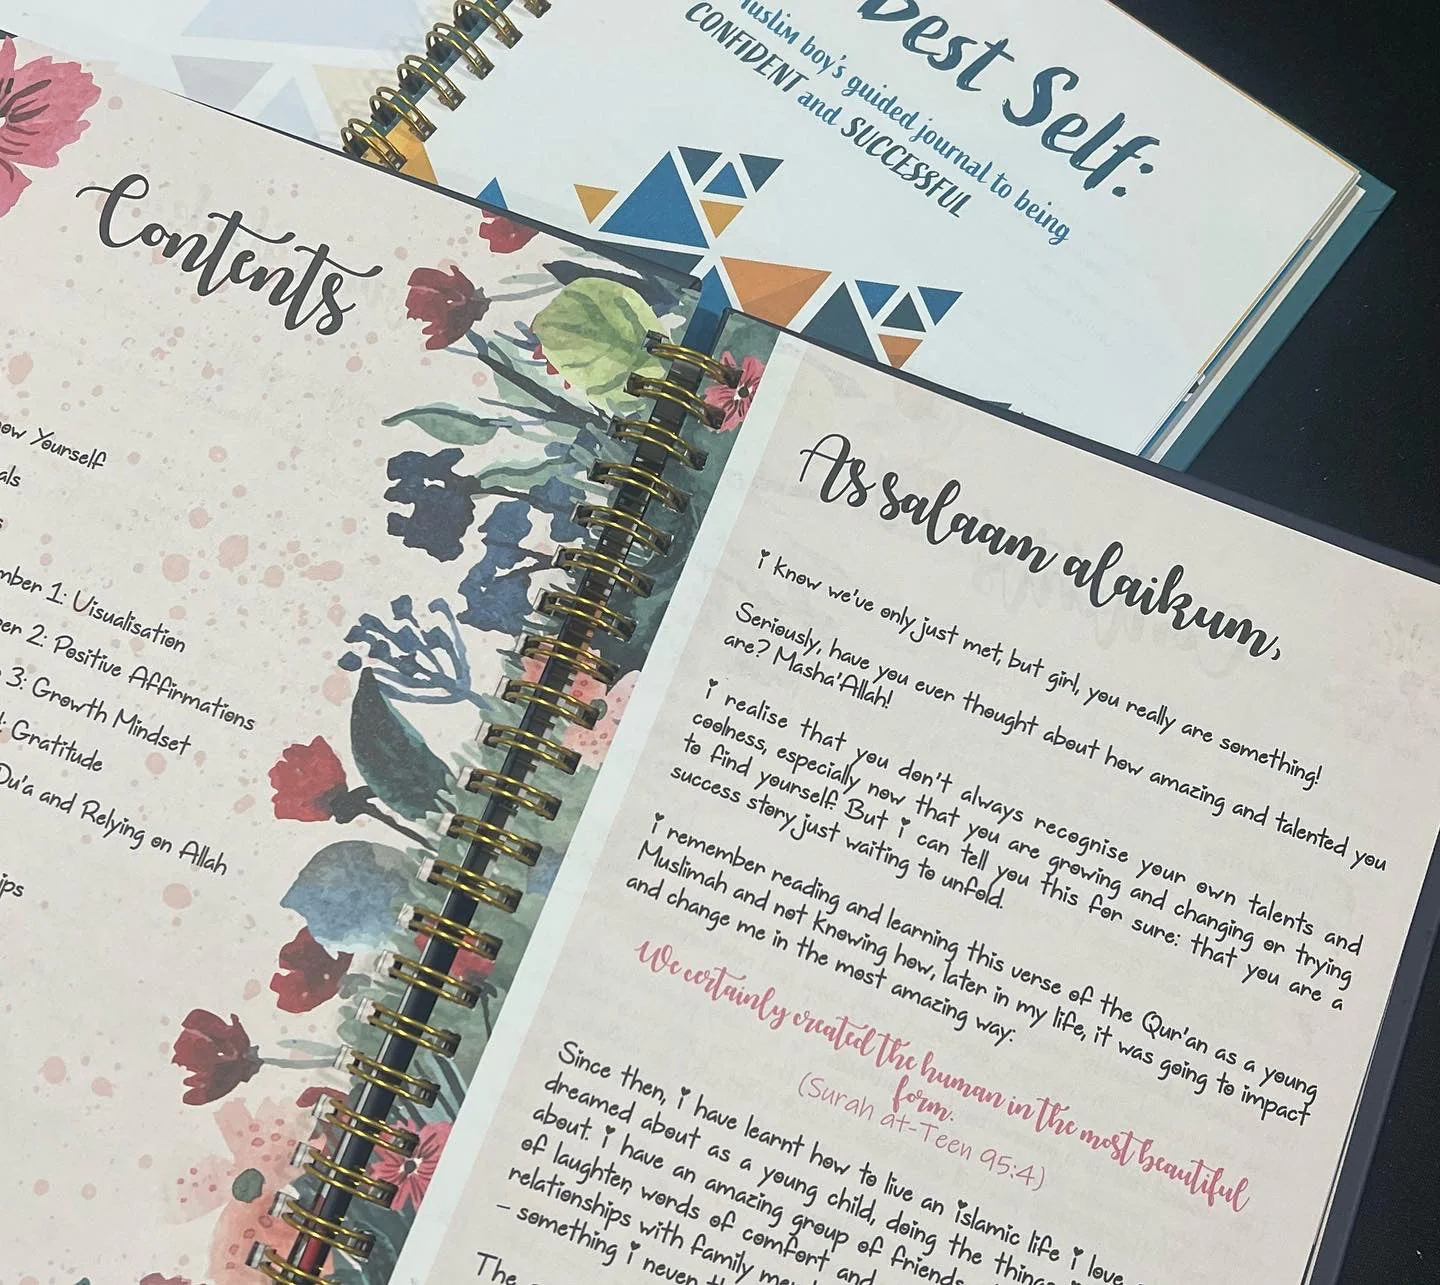 Best Self:
Muslim boy's guided journal to being
CONFIDENT and SUCCESSFUL
Contents
Yourself
1: Visualisation
2: Positive Affirmations
3: Growth Mindset
Gratitude
Du'a and Relying on Allah
As salaam alaikum,
i know we've only just met, but girl, you really are something!
Seriously, have you ever thought about how amazing and talented you
are? Masha'Allah!
i realise that you don't always recognise your own talents and
coolness, especially now that you are growing and changing or trying
to find yourself. But i can tell you this for sure: that you are a
success story just waiting to unfold.
i remember reading and learning this verse of the Qur'an as a young
Muslimah and not knowing how, later in my life, it was going to impact
and change me in the most amazing way:
We certainly created the human in the most beautiful
form.
(Surah at-Teen 95:4)
Since then, i have learnt how to live an islamic life i love
dreamed about as a young child, doing the things
about. i have an amazing group of friends
of laughter, words of comfort and
relationships with family
– something i never
The